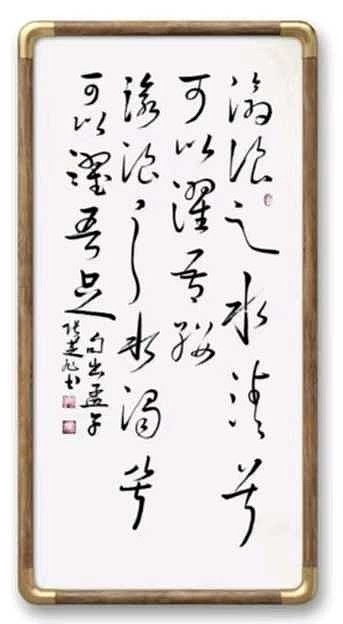 滄浪之水清兮
可以濯吾纓
滄浪之水濁兮
可以濯吾足
句出孟子